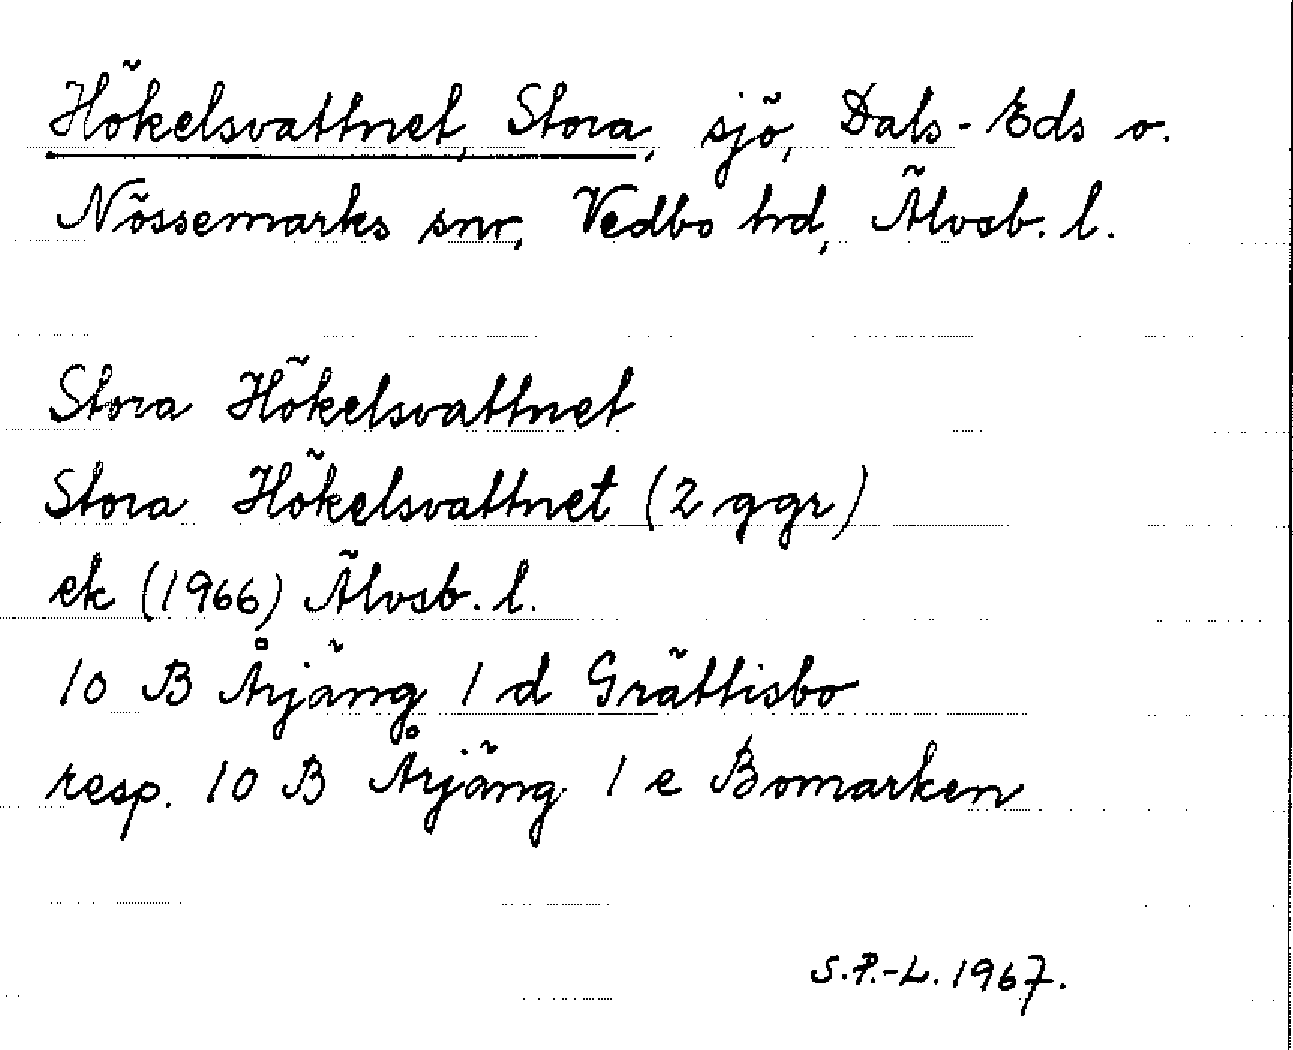 Hökelsvattnet, Stora, sjö, Dals-Eds o.
Nössemarks snr, Vedbo hd, Älvsb. l.
Stora Hökelsvattnet
Stora Hökelsvattnet (2 ggr)
ek (1966) Älvsb. l.
10 B Årjäng 1 d Grättisbo
resp. 10 B Årjäng 1 e Bomarken
S.P.-L. 1967.